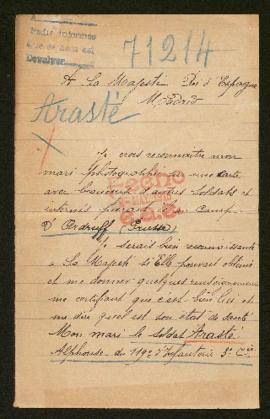 Pedir informes
que se hará así
Devolver
71214
A Sa Majesté Roi d'Espagne
Madrid
Arasté
X
Je crois reconnaître mon
mari photographié sur une carte
avec beaucoup d'autres soldats et
internés parmi Camp
D'Ordruff (Prusse)
Je serais bien reconnaissante
à Sa Majesté si Elle pouvait obtenir
et me donner quelques renseignements
me certifiant que c'est bien lui et
me dire quel est son état de santé
Mon mari le soldat Arasté
Alphonse du 119e d'Infanterie 3e Cie